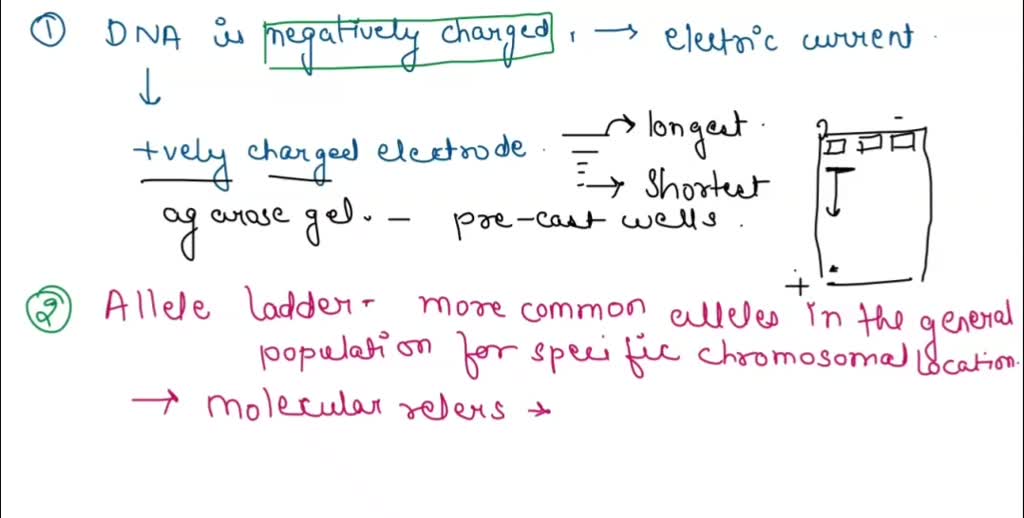 ① DNA is negatively charged, → electric current.
↓
+vely charged electrode. → longest.
→ Shortest
agarose gel. - pre-cast wells.
-
+
② Allele ladder - more common alleles in the general
population for specific chromosomal location.
→ molecular refers →